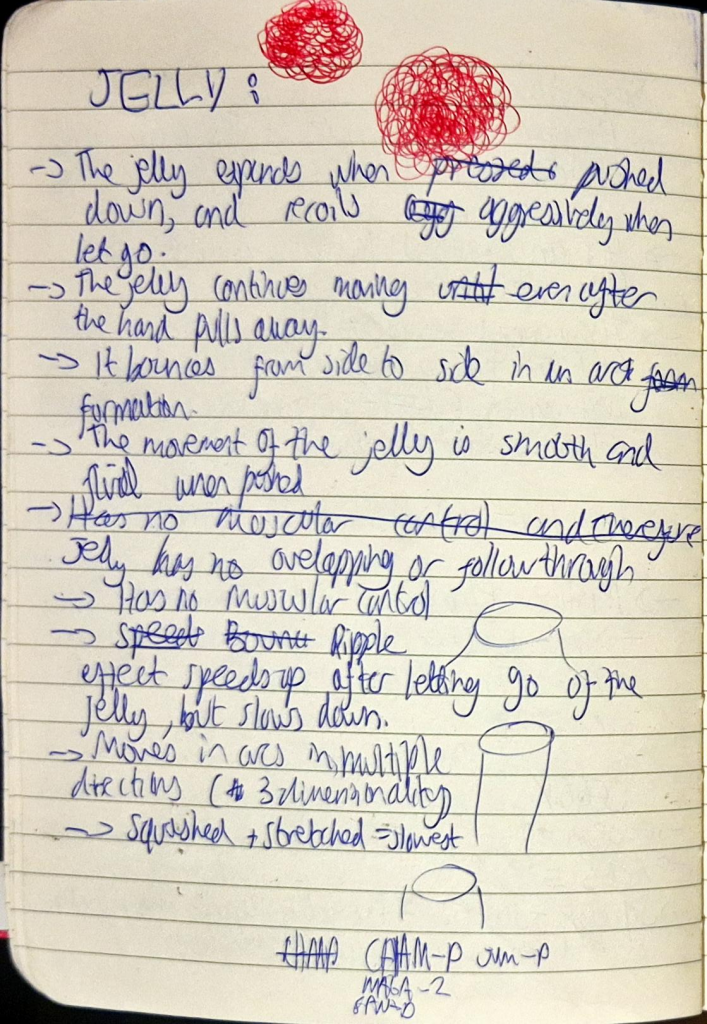 JELLY :
-> The jelly expands when pressed pushed
down, and recoils agg aggressively when
let go.
-> The jelly continues moving until even after
the hand pulls away.
-> It bounces from side to side in an arc form
formation.
-> The movement of the jelly is smooth and
fluid when pushed
-> Has no muscular control and therefore
jelly has no overlapping or follow through
-> Has no muscular control
-> speeds Bounc Ripple
effect speeds up after letting go of the
jelly, but slows down.
-> Moves in arcs in multiple
directions (3 dimensionality)
-> squished + stretched = slowest
CHAM-P JUM-P
MAGA-2